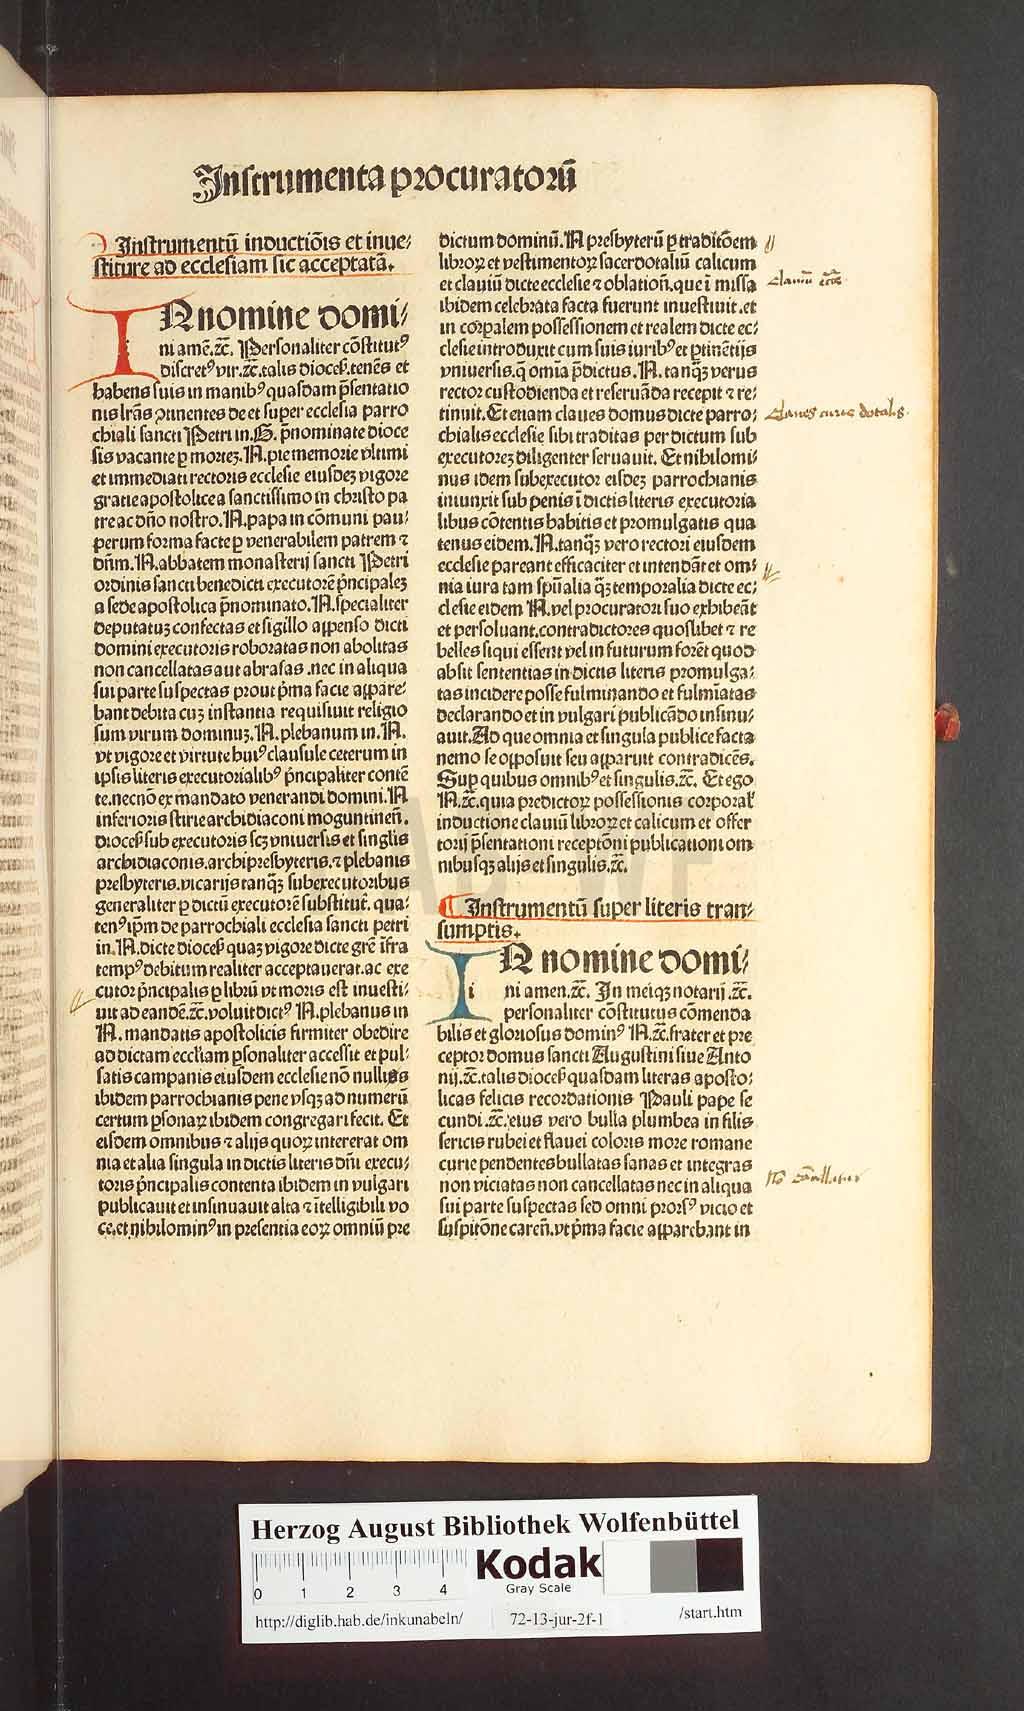 Instrumenta procuratorū
Instrumentū inductiōis et inue⸗
stiture ad ecclesiam sic acceptatā.
IN nomine domi⸗
ni amē.⁊c̄. Personaliter cōstitut⁹
discret⁹ vir.⁊c̄.talis dioceſ.tenēs et
habens suis in manib⁹ quasdam p̄sentatio
nis lr̄as ꝯtinentes de et super ecclesia parro
chiali sancti Petri in.G. p̄nominate dioce
sis vacante ꝑ morteꝫ.N.pie memorie vltimi
et immediati rectoris ecclesie eiusdeꝫ vigore
gratie apostolice a sanctissimo in christo pa
tre ac dn̄o nostro.N.papa in cōmuni pau⸗
perum forma facte ꝑ venerabilem patrem ⁊
dn̄m.N.abbatem monasterij sancti Petri
ordinis sancti benedicti executorē p̄ncipaleꝫ
a sede apostolica p̄nominato.N.specialiter
deputatuꝫ confectas et sigillo appenso dicti
domini executoris roboratas non abolitas
non cancellatas aut abrasas .nec in aliqua
sui parte suspectas prout p̄ma facie appare⸗
bant debita cuꝫ instantia requisiuit religio
sum virum dominuꝫ.N.plebanum in.N.
vt vigore et virtute hui⁹ clausule ceterum in
ipsis literis executorialib⁹ p̄ncipaliter contē
te.necnō ex mandato venerandi domini.N
inferioris stirie archidiaconi moguntineñ.
dioceſ sub executoris scꝫ vniuersis et singlis
archidiaconis.archipresbyteris.⁊ plebanis
presbyteris.vicarijs tanq̄ꝫ subexecutoribus
generaliter ꝑ dictū executorē substitut̄. qua⸗
ten⁹ ip̄m de parrochiali ecclesia sancti petri
in.N.dicte dioceſ quaꝫ vigore dicte gr̄e īfra
temp⁹ debitum realiter acceptauerat.ac exe
cutor p̄ncipalis ꝑ librū vt moris est inuesti⸗
uit ad eandē.⁊c̄.voluit dict⁹ N.plebanus in
N. mandatis apostolicis firmiter obedire
ad dictam eccl̄iam ꝑsonaliter accessit et pul⸗
satis campanis eiusdem ecclesie nō nullis
ibidem parrochianis pene vsqꝫ ad numerū
certum ꝑsonaꝝ ibidem congregari fecit. Et
eisdem omnibus ⁊ alijs quoꝝ intererat om
nia et alia singula in dictis literis dn̄i execu⸗
toris p̄ncipalis contenta ibidem in vulgari
publicauit et insinuauit alta ⁊ ītelligibili vo
ce.et nihilomin⁹ in presentia eoꝝ omniū pre
dictum dominū.N presbyterū ꝑ traditōem
libroꝝ et vestimentoꝝ sacerdotaliū calicum
et clauiū dicte ecclesie ⁊ oblation̄.que ī missa
ibidem celebrata facta fuerunt inuestiuit.et
in corꝑalem possessionem et realem dicte ec⸗
clesie introduxit cum suis iurib⁹ et ꝑtinētijs
vniuersis.q̄ omīa p̄dictus.N.tanq̄ꝫ verus
rector custodienda et reseruāda recepit ⁊ re⸗
tinuit.Et etiam claues domus dicte parro⸗
chialis ecclesie sibi traditas per dictum sub
executoreꝫ diligenter seruauit. Et nihilomi⸗
nus idem subexecutor eisdeꝫ parrochianis
iniunxit sub penis ī dictis literis executoria
libus cōtentis habitis et promulgatis qua
tenus eidem.N.tanq̄ꝫ vero rectori eiusdem
ecclesie pareant efficaciter et intendāt et om⸗
nia iura tam spūalia q̄ꝫ temporalia dicte ec⸗
clesie eidem N.vel procuratori suo exhibeāt
et persoluant.contradictores quoslibet ⁊ re
belles siqui essent vel in futurum forēt quod
absit sententias in dictis literis promulga⸗
tas incidere posse fulminando et fulmīatas
declarando et in vulgari publicādo insinu⸗
auit.Ad que omnia et singula publice facta
nemo se opposuit seu apparuit contradicēs.
Suꝑ quibus omnib⁹ et singulis.⁊c̄. Et ego
N.⁊c̄.quia predictoꝝ possessionis corporal̄
inductione clauiū libroꝝ et calicum et offer
torij p̄sentationi receptōni publicationi om
nibusqꝫ alijs et singulis.⁊c̄.
¶ Instrumentū super literis tran⸗
sumptis.
IN nomine domi⸗
i
ni amen.⁊c̄. In meiqꝫ notarij .⁊c̄.
personaliter cōstitutus cōmenda
bilis et gloriosus domin⁹ N.⁊c̄.frater et pre
ceptor domus sancti Augustini siue Anto
nij.⁊c̄.talis dioceſ quasdam literas aposto⸗
licas felicis recordationis Pauli pape se
cundi .⁊c̄.eius vero bulla plumbea in filis
sericis rubei et flauei coloris more romane
curie pendentes bullatas sanas et integras
non viciatas non cancellatas nec in aliqua
sui parte suspectas sed omni prors⁹ vicio et
suspitōne careñ.vt p̄ma facie apparebant in
Herzog August Bibliothek Wolfenbüttel
0 1 2 3 4
Kodak
Gray Scale
http://diglib.hab.de/inkunabeln/ 72-13-jur-2f-1 /start.htm